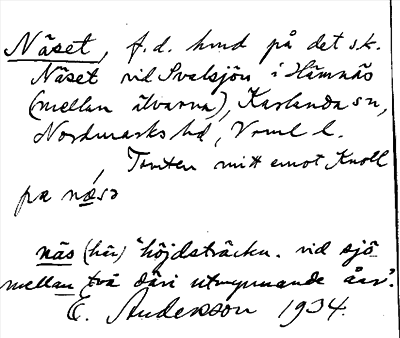 Näset, f.d. hmd på det s.k.
Näset vid Svalsjön i Hämnäs
(mellan älvarna), Karlanda sn,
Nordmarks hd, Vrml l.
Tomten mitt emot Knoll
på næsə
näs (här) "höjdsträckn. vid sjö
mellan två däri utmynnande åar".
E. Andersson 1934.